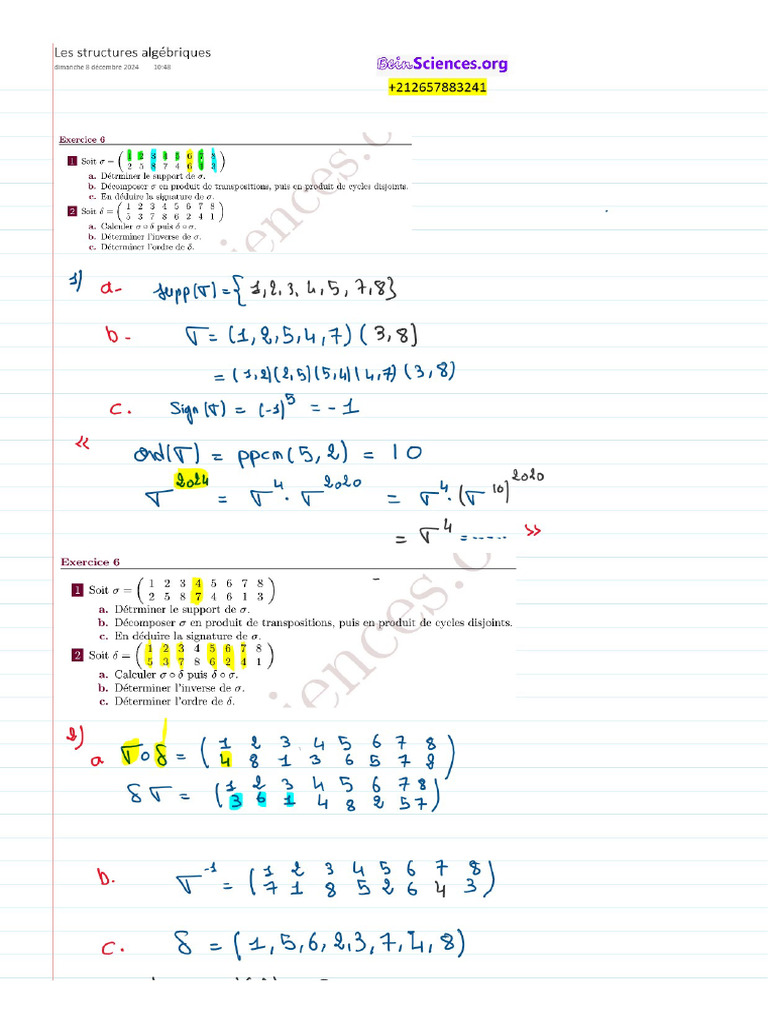 Les structures algébriques
dimanche 8 décembre 2024 10:48
BeinSciences.org
+212657883241
Exercice 6
1 Soit σ = ( 1 2 3 4 5 6 7 8
2 5 8 7 4 6 1 3 )
a. Détrminer le support de σ.
b. Décomposer σ en produit de transpositions, puis en produit de cycles disjoints.
c. En déduire la signature de σ.
2 Soit δ = ( 1 2 3 4 5 6 7 8
5 3 7 8 6 2 4 1 )
a. Calculer σ ∘ δ puis δ ∘ σ.
b. Déterminer l'inverse de σ.
c. Déterminer l'ordre de δ.
1) a- supp(σ) = { 1, 2, 3, 4, 5, 7, 8}
b- σ = (1, 2, 5, 4, 7) ( 3, 8]
= (1,2)(2,5)(5,4)(4,7) (3,8)
c. Sign(σ) = (-1)^5 = -1
« ord(σ) = ppcm(5, 2) = 10
σ^2024 = σ^4 . σ^2020 = σ^4 . (σ^10)^2020
= σ^4 = ..... »
Exercice 6
1 Soit σ = ( 1 2 3 4 5 6 7 8
2 5 8 7 4 6 1 3 )
a. Détrminer le support de σ.
b. Décomposer σ en produit de transpositions, puis en produit de cycles disjoints.
c. En déduire la signature de σ.
2 Soit δ = ( 1 2 3 4 5 6 7 8
5 3 7 8 6 2 4 1 )
a. Calculer σ ∘ δ puis δ ∘ σ.
b. Déterminer l'inverse de σ.
c. Déterminer l'ordre de δ.
2) a σ ∘ δ = ( 1 2 3 4 5 6 7 8
4 8 1 3 6 5 7 2 )
δ σ = ( 1 2 3 4 5 6 7 8
3 6 1 4 8 2 5 7 )
b. σ^-1 = ( 1 2 3 4 5 6 7 8
7 1 8 5 2 6 4 3 )
c. δ = (1, 5, 6, 2, 3, 7, 4, 8)